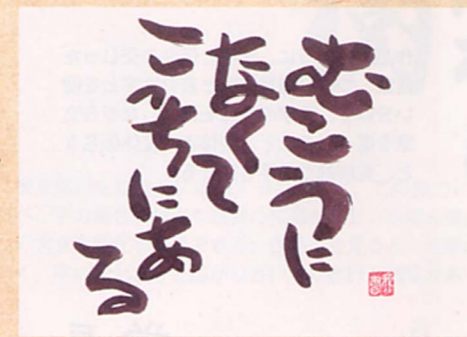 むこうに
なくて
こっちにあ
る